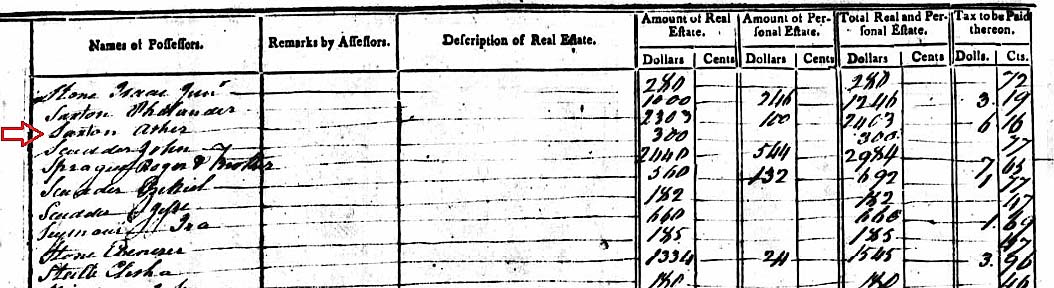 Names of Possessors. Remarks by Assessors. Description of Real Estate. Amount of Real Estate. Amount of Personal Estate. Total Real and Personal Estate. Tax to be Paid thereon.
Dollars Cents Dollars Cents Dollars Cents Dolls. Cts.
Stone Isaac Junr 280 280 72
Saxton Philander 1000 246 1246 3 19
Saxton Asher 2303 100 2403 6 16
Scudder John 300 300 77
Sprague Roger & Brother 2440 544 2984 7 65
Scudder Ezekiel 560 132 692 1 77
Scudder 182 182 47
Seymour Ira 660 660 1 69
Stone Ebenezer 185 185 47
Steele Elisha 1334 1545 3 96
180 180 46